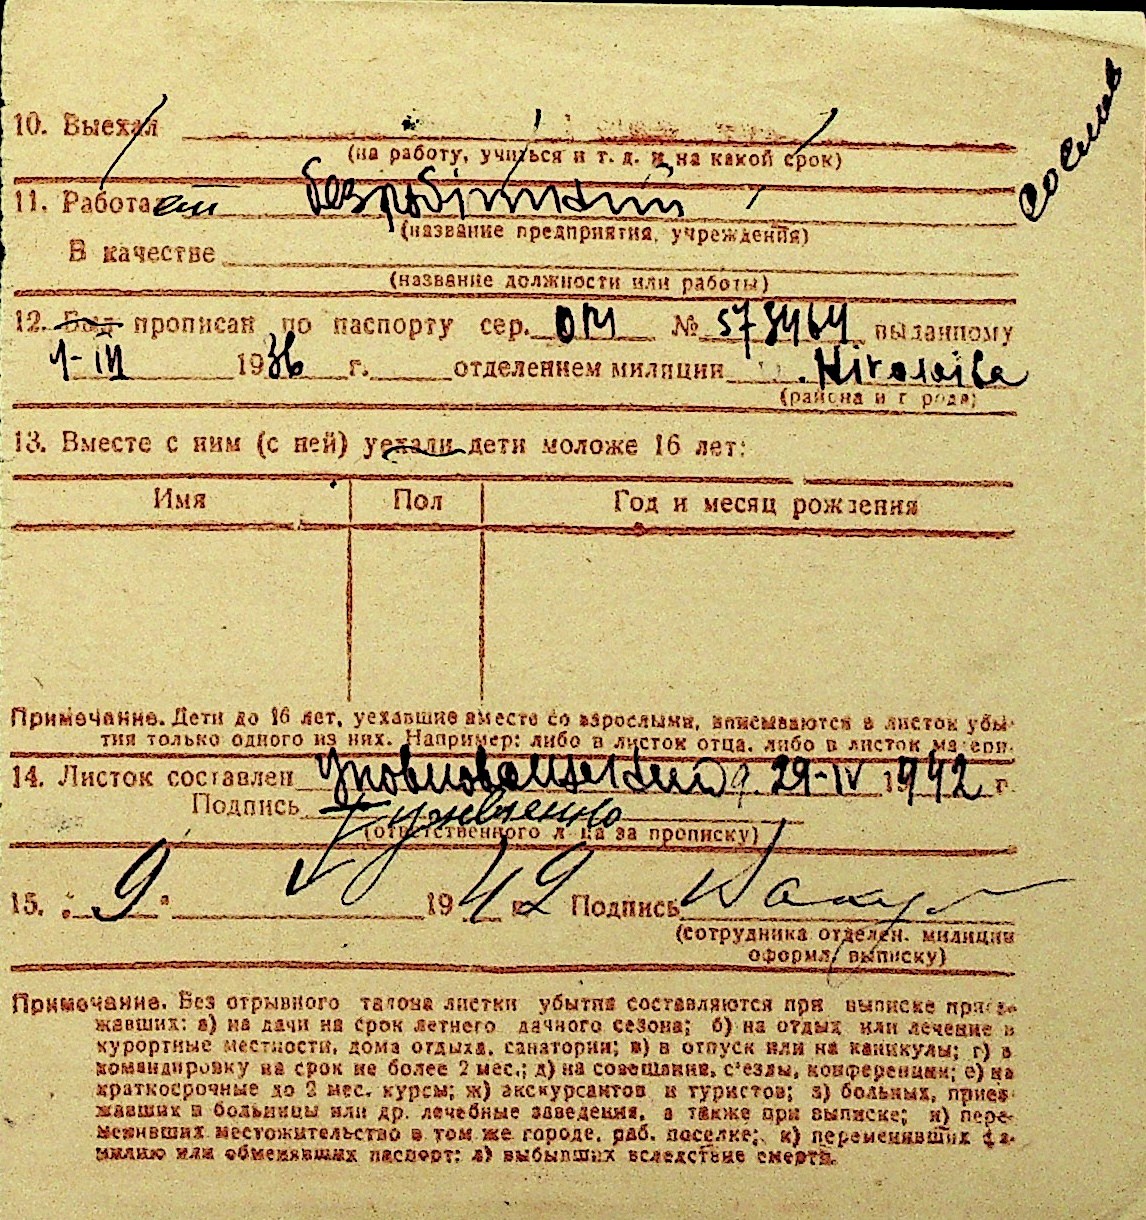 10. Выехал
(на работу, учиться и т. д. и на какой срок)
11. Работает безробітний
(название предприятия, учреждения)
В качестве
(название должности или работы)
12. Был прописан по паспорту сер. № 573464 выданному
1-III 1936 г. отделением милиции Ніколаїва
(района и города)
13. Вместе с ним (с ней) уехали дети моложе 16 лет:
Имя Пол Год и месяц рождения
Примечание. Дети до 16 лет, уехавшие вместе со взрослыми, вписываются в листок убы-
тия только одного из них. Например: либо в листок отца, либо в листок матери.
14. Листок составлен 29-IV 1942 г.
Подпись
(ответственного лица за прописку)
15. „9" 1942 Подпись
(сотрудника отделен. милиции
оформл. выписку)
Примечание. Без отрывного талона листки убытия составляются при выписке приез-
жавших: а) на дачи на срок летнего дачного сезона; б) на отдых или лечение в
курортные местности, дома отдыха, санатории; в) в отпуск или на каникулы; г) в
командировку на срок не более 2 мес.; д) на совещания, с'езды, конференции; е) на
краткосрочные до 2 мес. курсы; ж) экскурсантов и туристов; з) больных, приез-
жавших в больницы или др. лечебные заведения, а также при выписке; и) пере-
менивших местожительство в том же городе, раб. поселке; к) переменивших фа-
милию или обменявших паспорт; л) выбывших вследствие смерти.